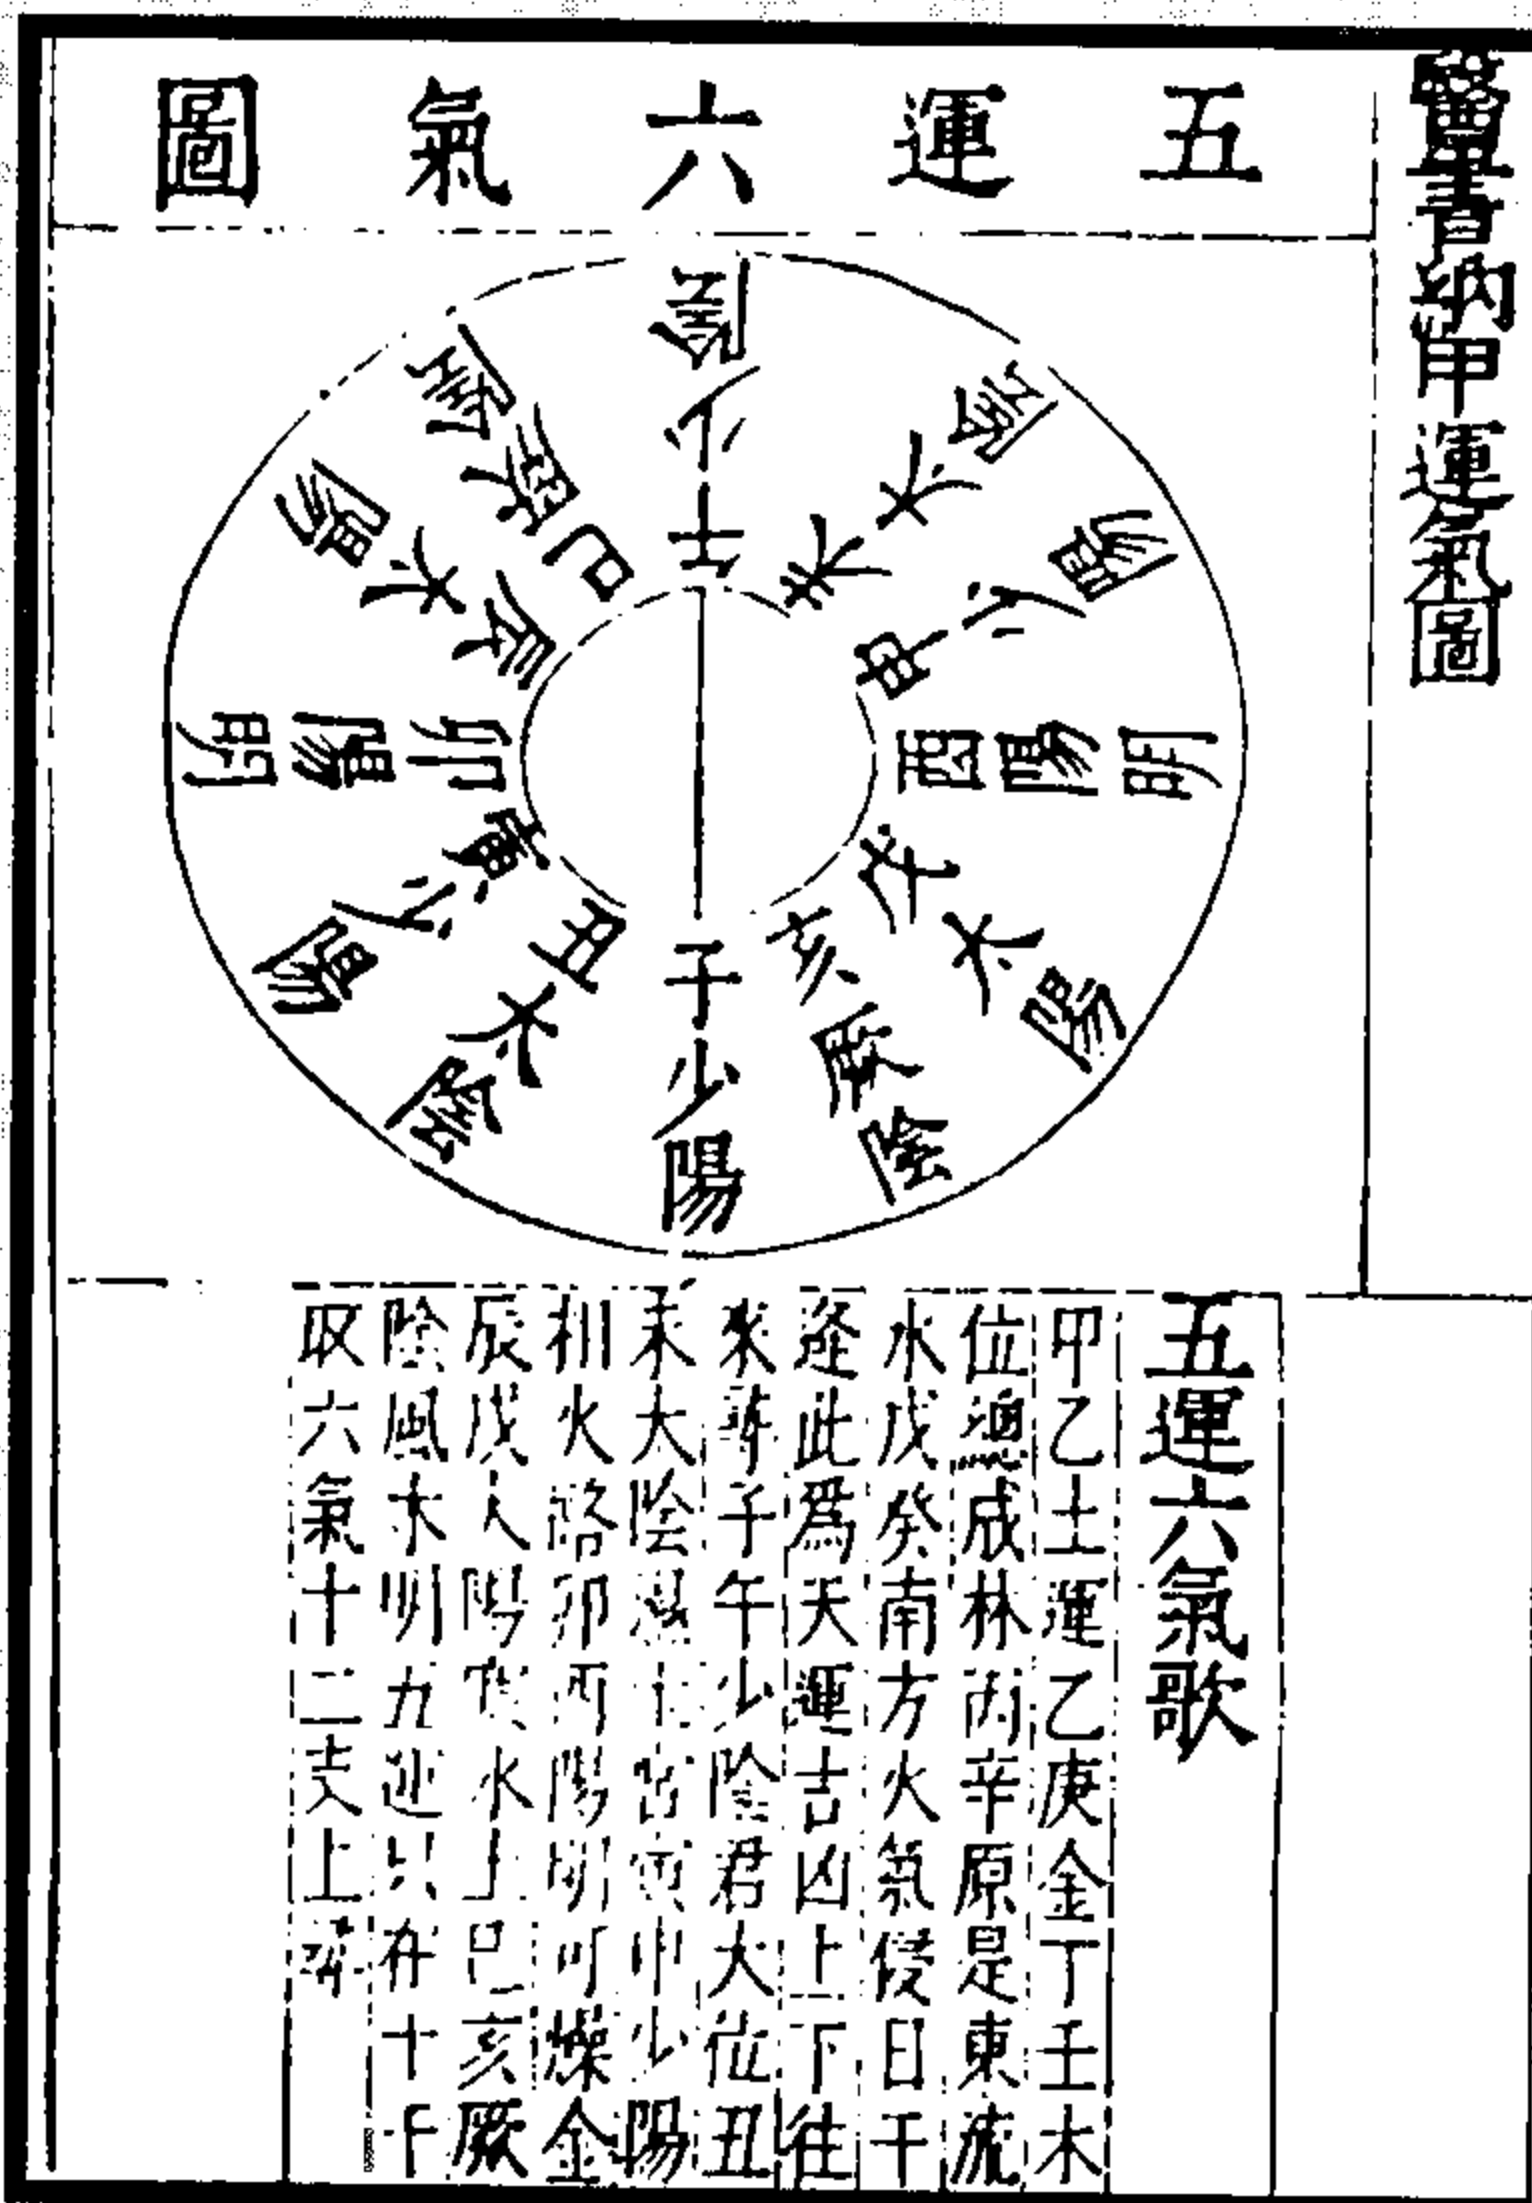 醫書納甲運氣圖
五運六氣圖
子少陽
丑太陰
寅少陽
卯陽明
辰太陽
巳厥陰
少陰
未太陰
申少陽
酉陽明
太陽
亥厥陰
五運六氣歌
甲乙土運乙庚金丁壬木
位總成林丙辛原是東流
水戊癸南方火氣侵日干
逢此爲天運吉凶上下往
來尋子午少陰君火位丑
未太陰濕土宮寅申少陽
相火路卯酉陽明可燥金
辰戌太陽水巳亥厥
陰風木明九運只在十干
収六氣十二支上尋